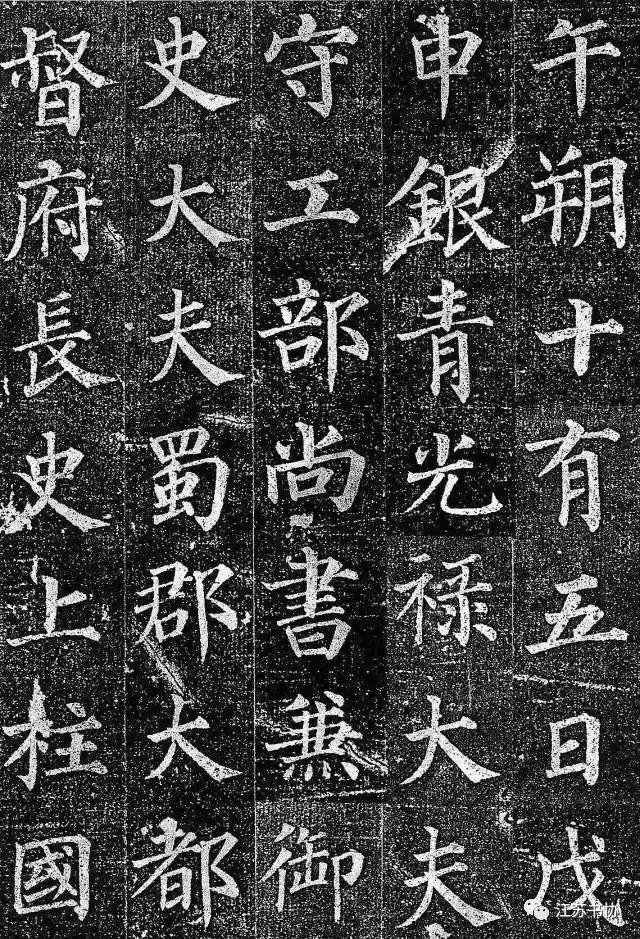 午朔十有五日戊
申銀青光祿大夫
守工部尚書兼御
史大夫蜀郡大都
督府長史上柱國
江苏书协